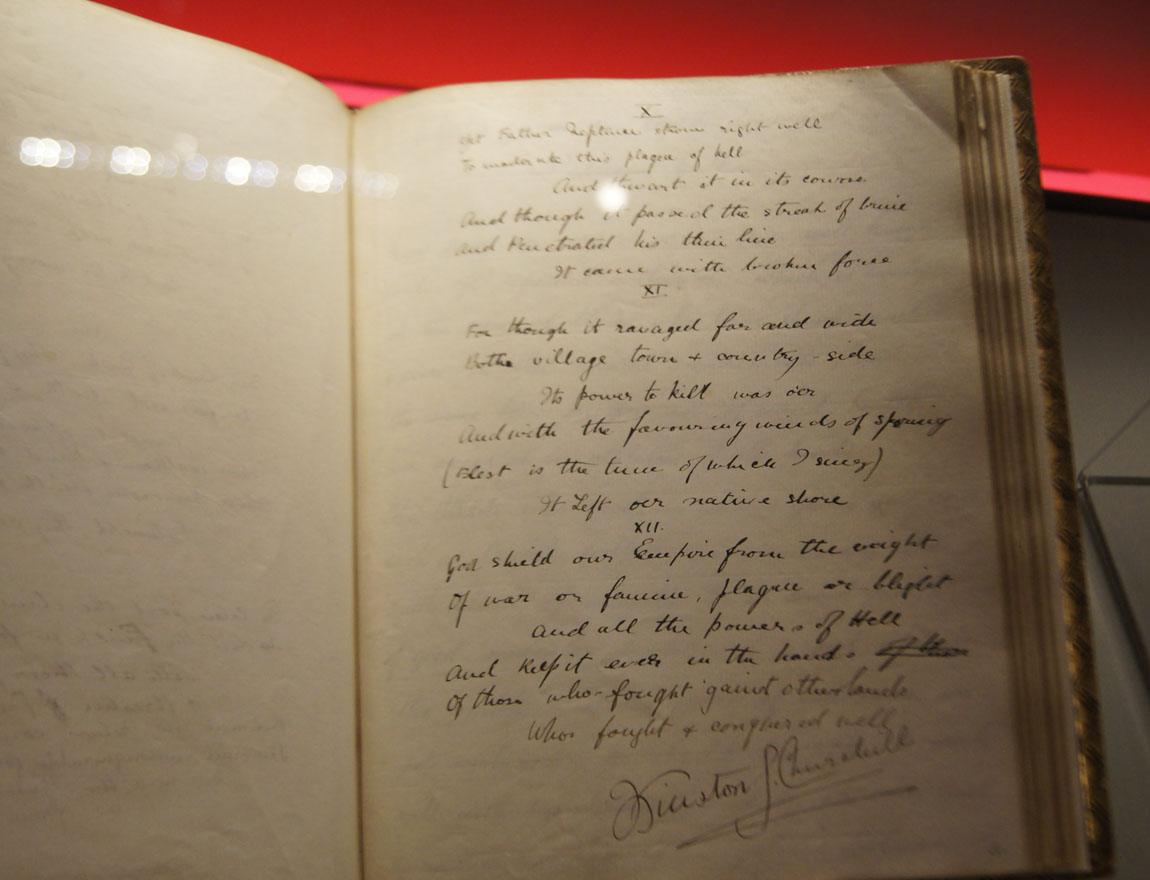 X
Yet Father Neptune strove right well
To moderate this plague of hell
And thwart it in its course
And though it passed the streak of brine
and Penetrated his thin line
It came with broken force
XI.
For though it ravaged far and wide
Bothe village town + country-side
Its power to kill was oer
And with the favouring winds of Spring
(Blest is the time of which I sing)
It Left oer native shore
XII.
God shield our Empire from the might
Of war or famine, plague or blight
And all the powers of Hell
And keep it ever in the hands
Of those who fought gainst other lands
Who fought + conquered well
Winston S. Churchill